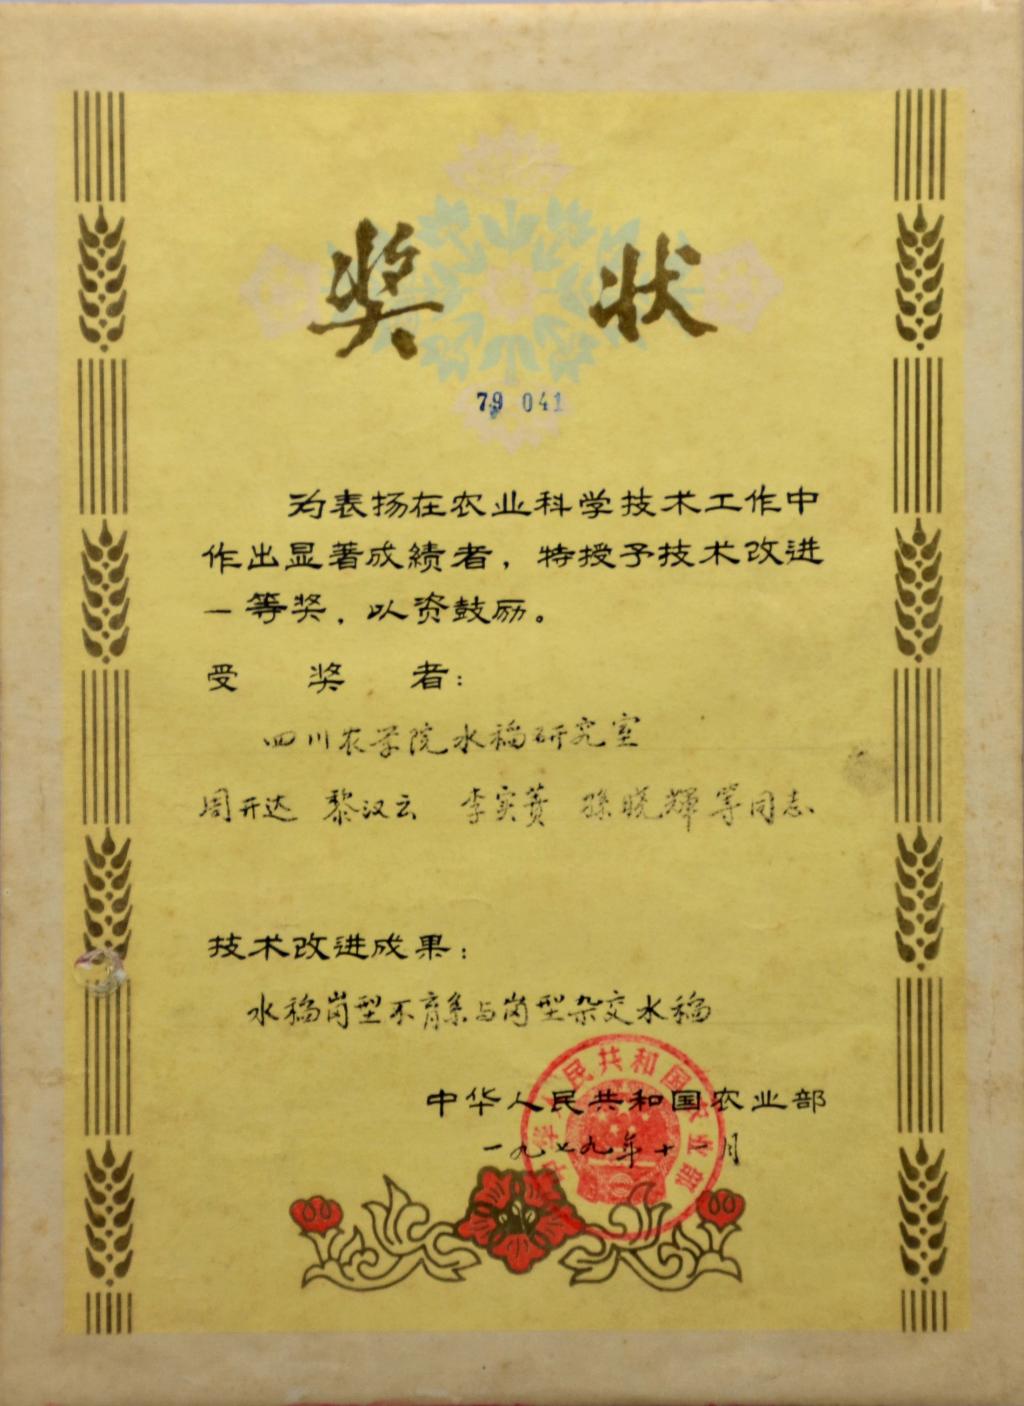 奖状
79 041
为表扬在农业科学技术工作中
作出显著成績者，特授予技术改进
一等奖，以资鼓励。
受奖者：
四川农学院水稻研究室
周开达 黎汉云 李实蕡 孙晓辉等同志
技术改进成果：
水稻岗型不育系与岗型杂交水稻
中华人民共和国农业部
一九七九年十一月
中华人民共和国农业部